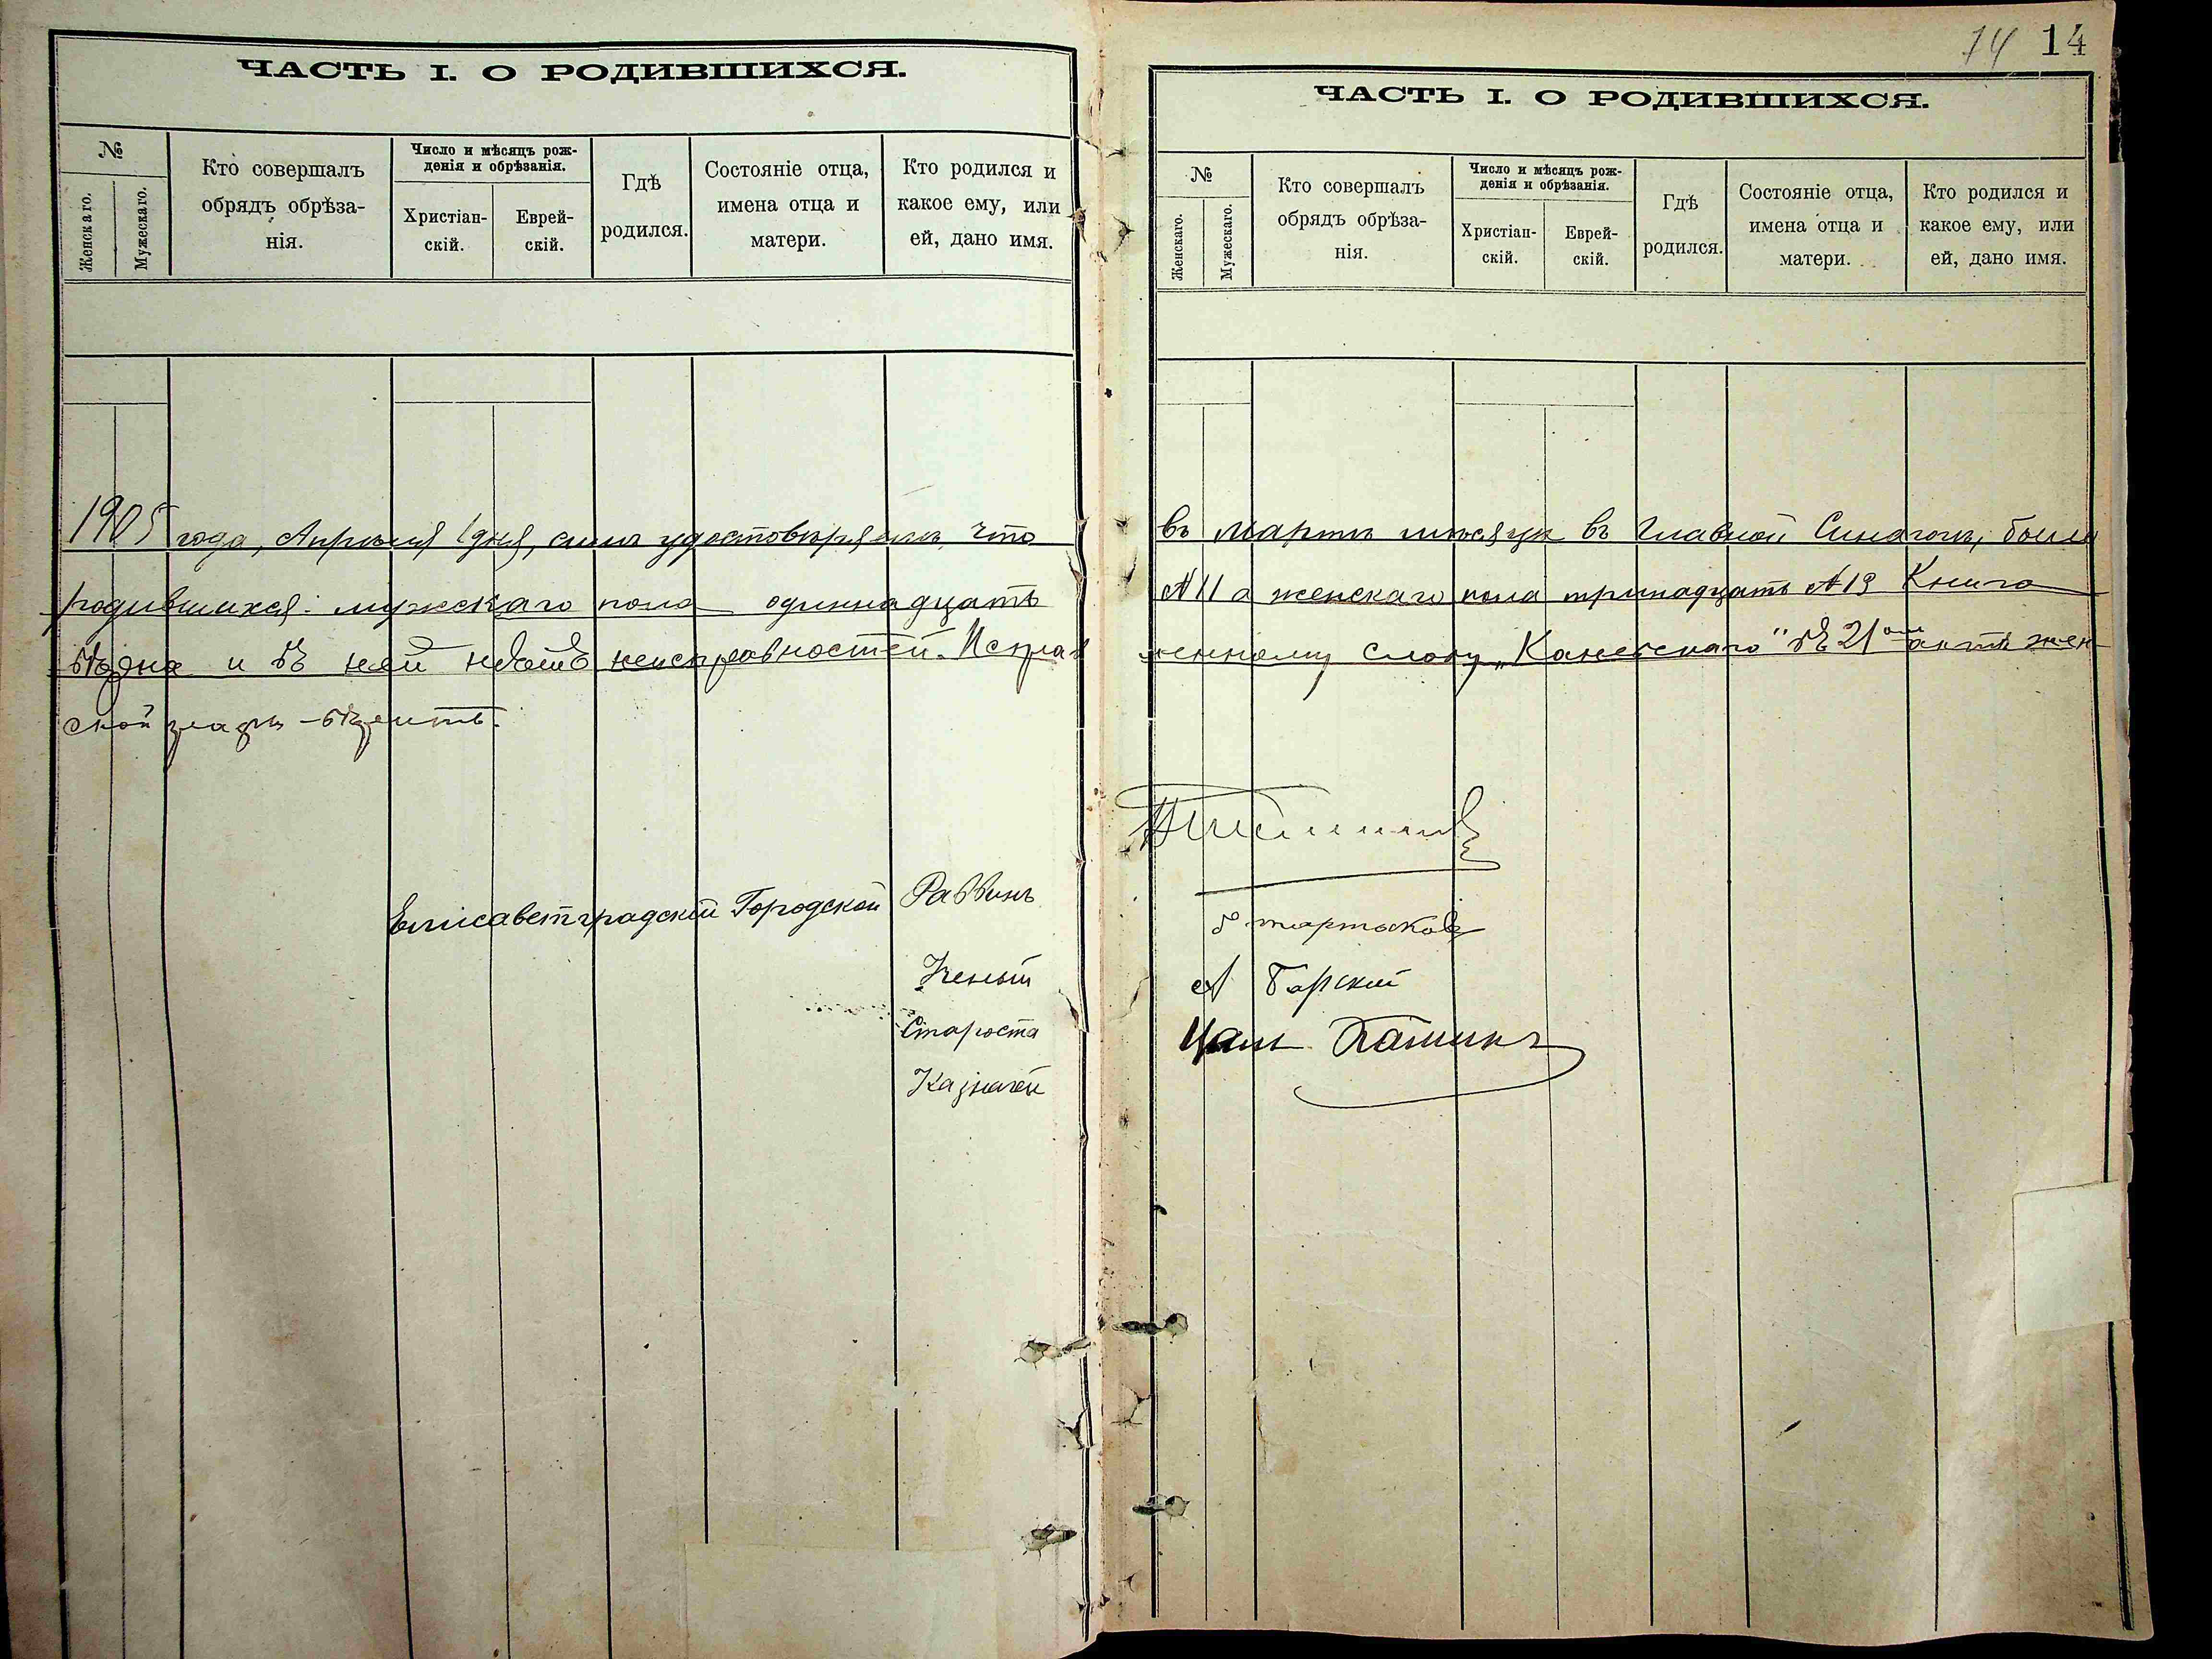 ЧАСТЬ I. О РОДИВШИХСЯ.
№
Женскаго.
Мужескаго.
Кто совершалъ
обрядъ обрѣза-
нія.
Число и мѣсяцъ рож-
денія и обрѣзанія.
Христіан-
скій.
Еврей-
скій.
Гдѣ
родился.
Состояніе отца,
имена отца и
матери.
Кто родился и
какое ему, или
ей, дано имя.
1905 года, Апрѣля 1 дня, симъ удостовѣряемъ, что
родившихся: мужскаго пола одиннадцать
вѣрна и въ ней нѣтъ неисправностей. Исправ
ской вѣрить.
Елисаветградскій Городской Раввинъ
Ученый
Староста
Казначей
14 14
ЧАСТЬ I. О РОДИВШИХСЯ.
№
Женскаго.
Мужескаго.
Кто совершалъ
обрядъ обрѣза-
нія.
Число и мѣсяцъ рож-
денія и обрѣзанія.
Христіан-
скій.
Еврей-
скій.
Гдѣ
родился.
Состояніе отца,
имена отца и
матери.
Кто родился и
какое ему, или
ей, дано имя.
въ Мартѣ мѣсяцѣ въ Главной Синагогѣ, было
№ 11 а женскаго пола тринадцать № 19 Книга
ленному слову „Каневскаго" въ 21ом актѣ жен